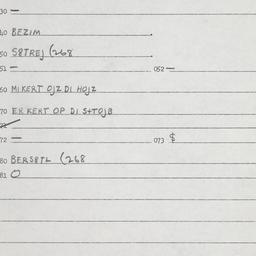 30 —
40 BEZIM
50 S8TREJ (268
51 — 052 —
60 MIKERT OJZ DI HOJZ
70 ER KERT OP DI S++OJB
72 — 073 $
80 BERS8TL (268
81 O